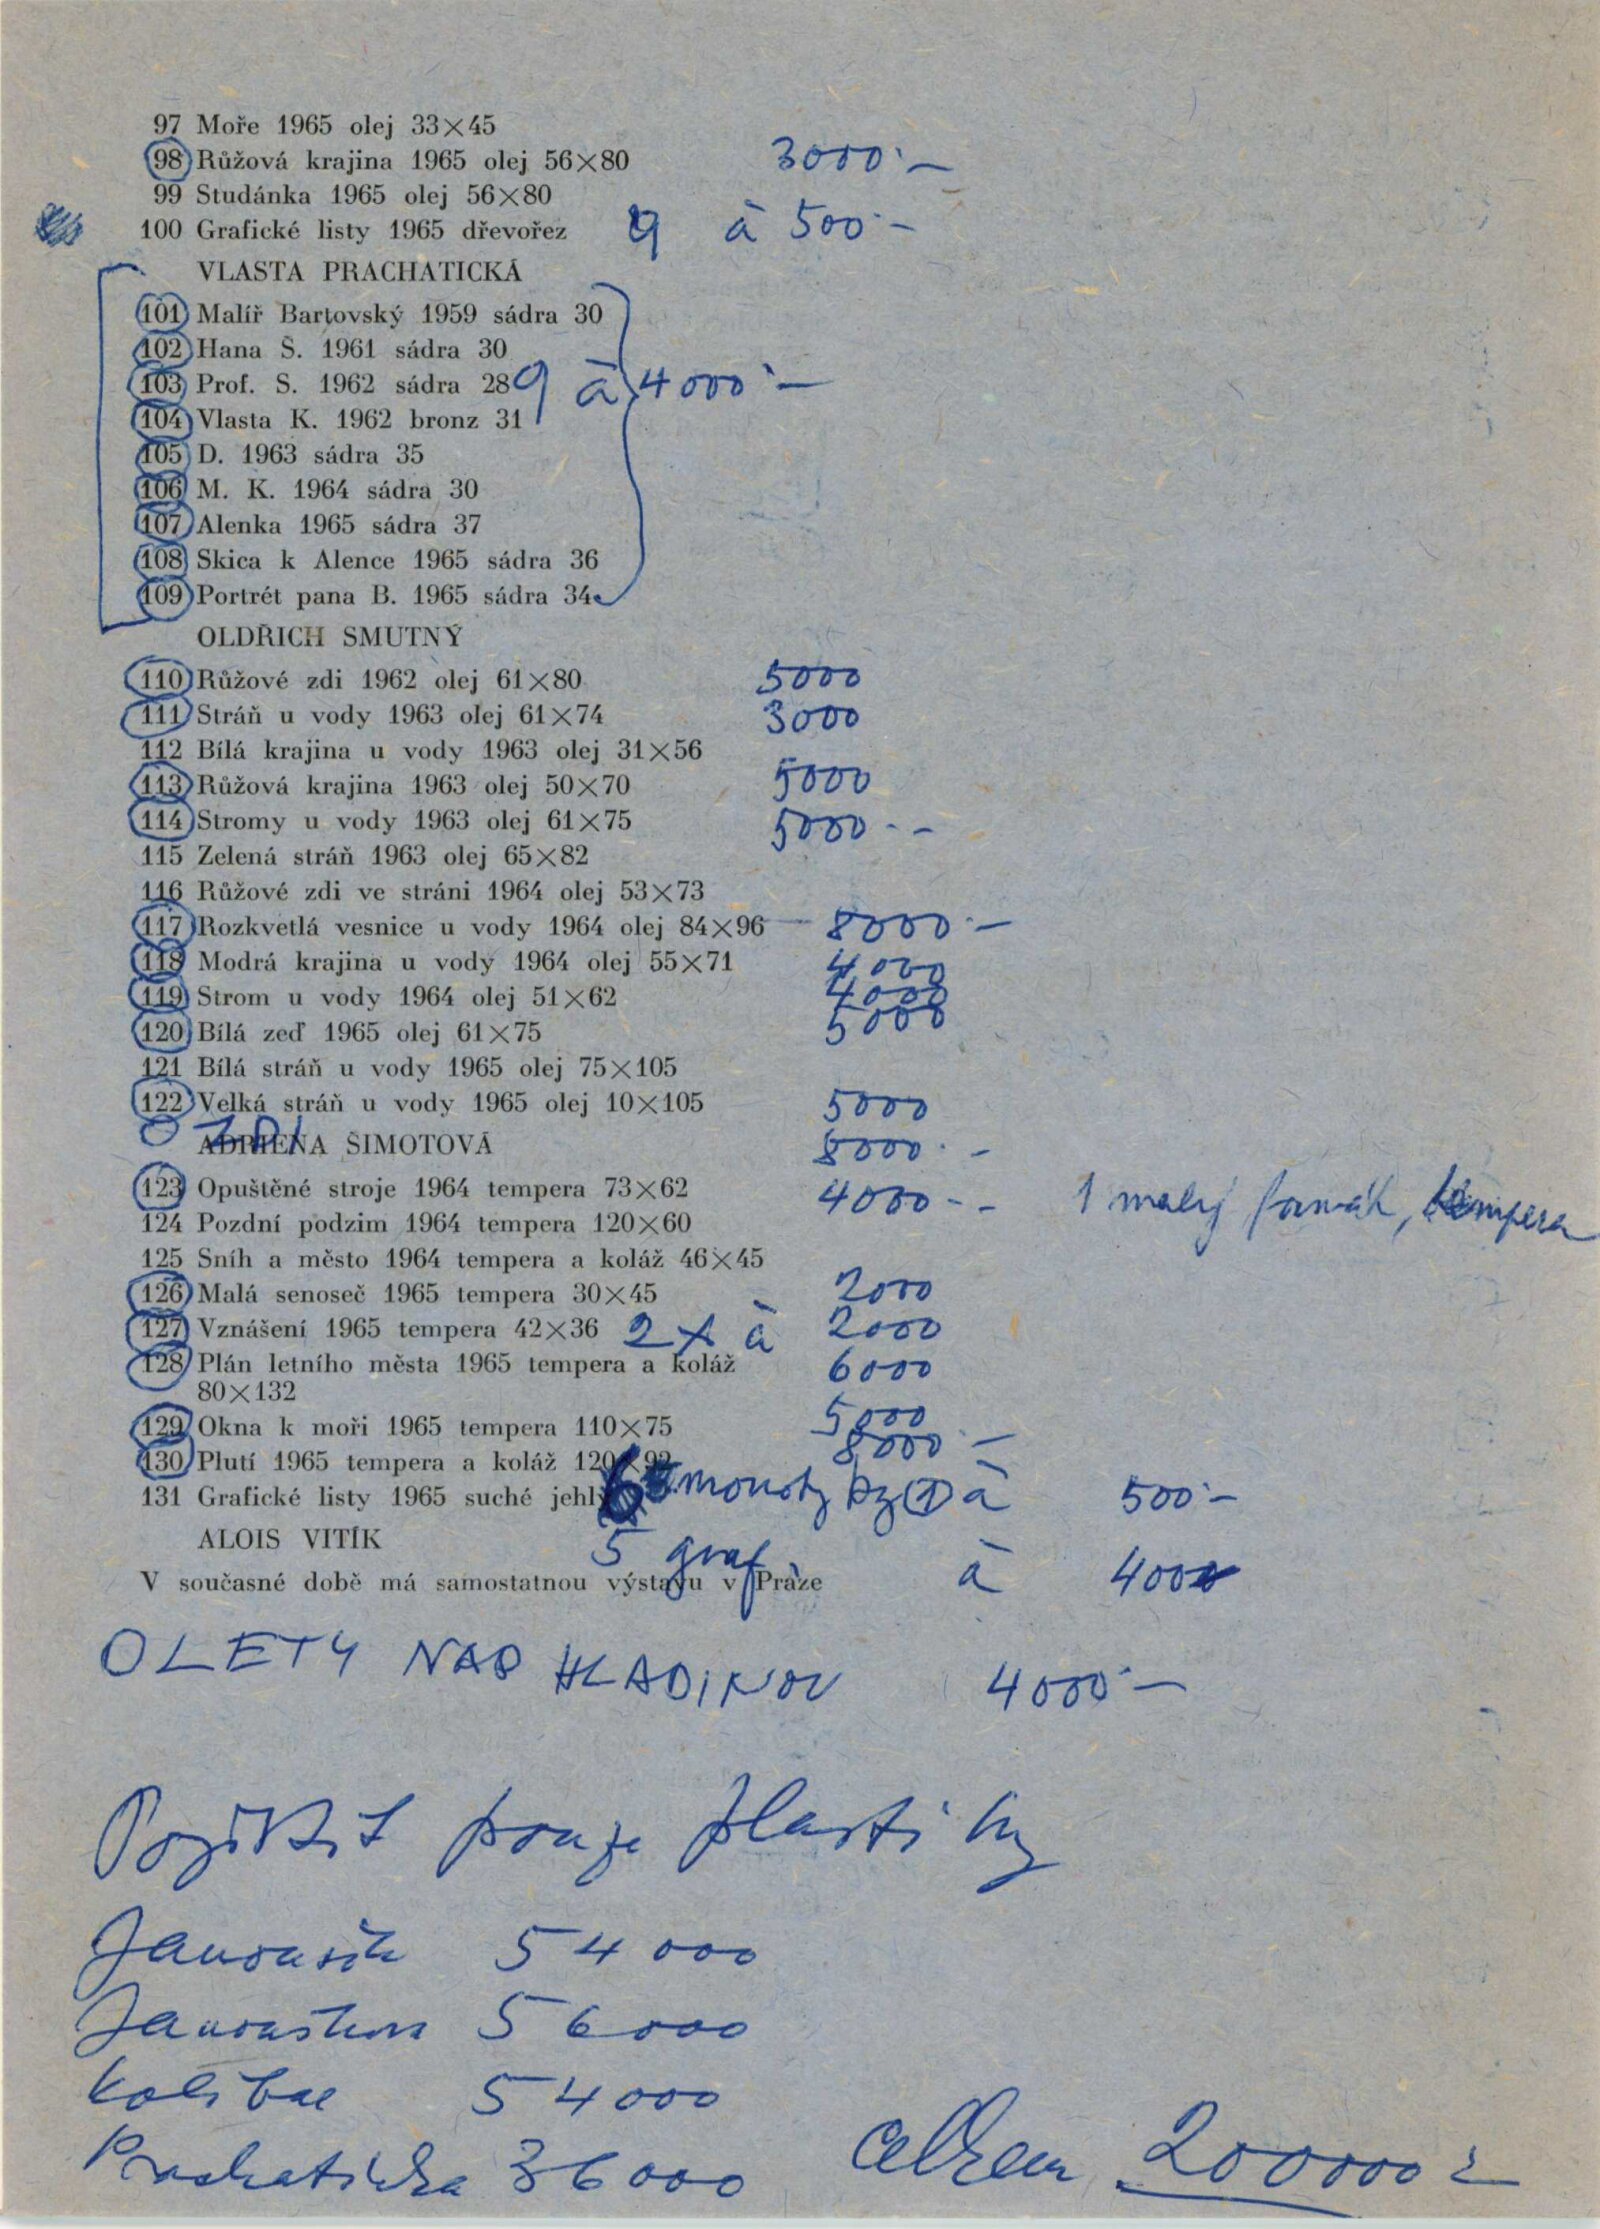 97 Moře 1965 olej 33×45
98 Růžová krajina 1965 olej 56×80 3000·–
99 Studánka 1965 olej 56×80
100 Grafické listy 1965 dřevořez 9 à 500·–
VLASTA PRACHATICKÁ
101 Malíř Bartovský 1959 sádra 30
102 Hana S. 1961 sádra 30
103 Prof. S. 1962 sádra 28 9 à 4000·–
104 Vlasta K. 1962 bronz 31
105 D. 1963 sádra 35
106 M. K. 1964 sádra 30
107 Alenka 1965 sádra 37
108 Skica k Alence 1965 sádra 36
109 Portrét pana B. 1965 sádra 34
OLDŘICH SMUTNÝ
110 Růžové zdi 1962 olej 61×80 5000
111 Stráň u vody 1963 olej 61×74 3000
112 Bílá krajina u vody 1963 olej 31×56
113 Růžová krajina 1963 olej 50×70 5000
114 Stromy u vody 1963 olej 61×75 5000·–
115 Zelená stráň 1963 olej 65×82
116 Růžové zdi ve stráni 1964 olej 53×73
117 Rozkvetlá vesnice u vody 1964 olej 84×96 – 8000·–
118 Modrá krajina u vody 1964 olej 55×71 4000
119 Strom u vody 1964 olej 51×62 4000
120 Bílá zeď 1965 olej 61×75 5000
121 Bílá stráň u vody 1965 olej 75×105
122 Velká stráň u vody 1965 olej 10×105 5000
O ZDI 8000·–
ADRIENA ŠIMOTOVÁ
123 Opuštěné stroje 1964 tempera 73×62 4000·– 1 malý formát, tempera
124 Pozdní podzim 1964 tempera 120×60
125 Sníh a město 1964 tempera a koláž 46×45
126 Malá senoseč 1965 tempera 30×45 2000
127 Vznášení 1965 tempera 42×36 2× à 2000
128 Plán letního města 1965 tempera a koláž 6000
80×132
129 Okna k moři 1965 tempera 110×75 5000
130 Plutí 1965 tempera a koláž 120×92 8000·–
131 Grafické listy 1965 suché jehly 6 à 500·–
ALOIS VITÍK
5 graf. à 400
V současné době má samostatnou výstavu v Praze
OLETY NAD HLADINOU 4000·–
Pojistit pouze plastiky
Janoušek 54000
Janoušková 56000
Kolíbal 54000
Prachatická 36000 Celkem 200000·–